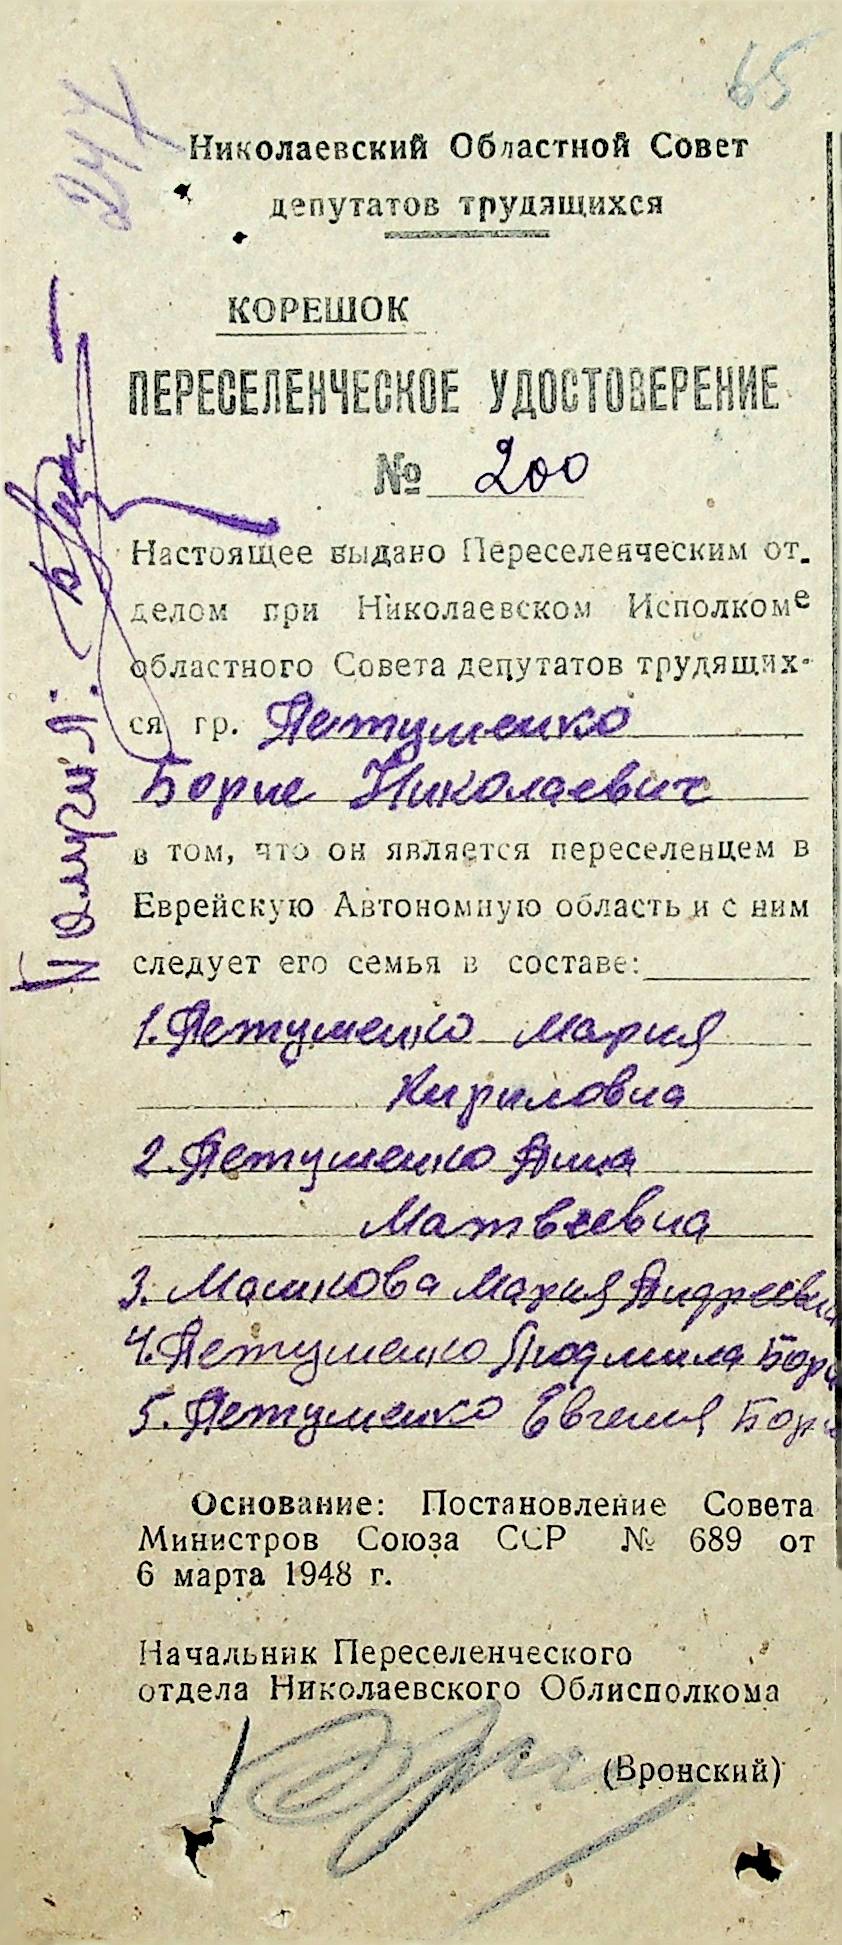 65
247
Николаевский Областной Совет
депутатов трудящихся
КОРЕШОК
ПЕРЕСЕЛЕНЧЕСКОЕ УДОСТОВЕРЕНИЕ
№ 200
Настоящее выдано Переселенческим от.
делом при Николаевском Исполкоме
областного Совета депутатов трудящих-
ся гр. Петушенко
Борис Николаевич
в том, что он является переселенцем в
Еврейскую Автономную область и с ним
следует его семья в составе:
1. Петушенко Мария
Кириловна
2. Петушенко Анна
Матвеевна
3. Машкова Мария Андреевн
4. Петушенко Людмила Бори
5. Петушенко Евгения Бори
Основание: Постановление Совета
Министров Союза ССР № 689 от
6 марта 1948 г.
Начальник Переселенческого
отдела Николаевского Облисполкома
(Вронский)